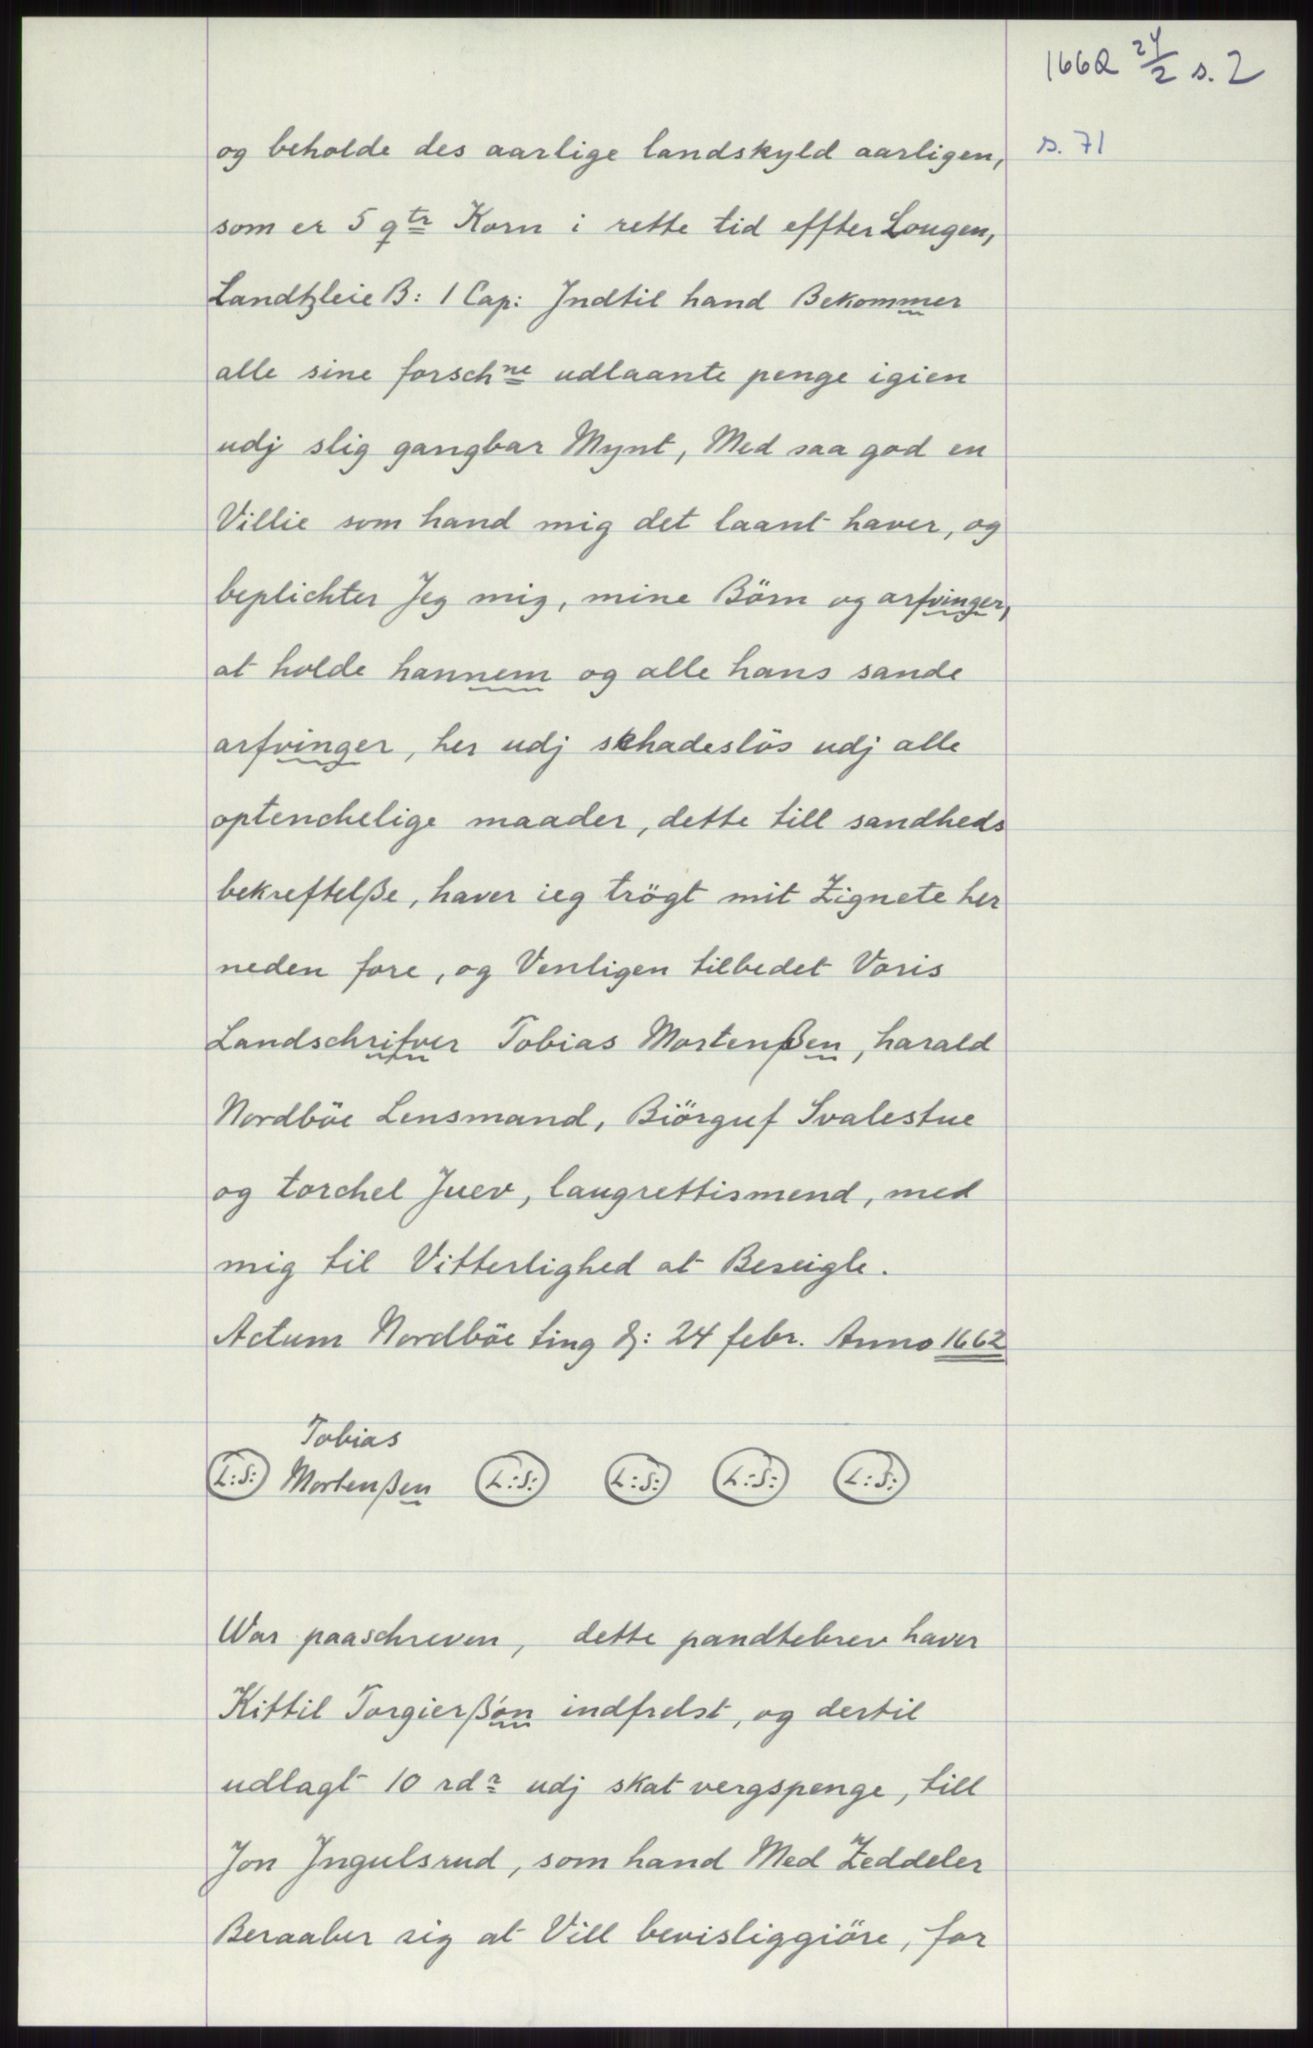 1662 24/2 s. 2
s. 71
og beholde des aarlige landskyld aarligen,
som er 5 qtr Korn i rette tid effter Lougen,
Landtzleie B: 1 Cap: Jndtil hand Bekommer
alle sine forschne udlaante penge igien
udj slig gangbar Mynt, Med saa god en
Villie som hand mig det laant haver, og
beplichter Jeg mig, mine Börn og arfvinger,
at holde hannem og alle hans sande
arfvinger, her udj skhadeslös udj alle
optenchelige maader, dette till sandheds
bekreftelße, haver ieg trögt mit Zignete her
neden fore, og Venligen tilbedet Voris
Landschrifver Tobias Mortenßen, harald
Nordböe Lensmand, Biörguf Svalestue
og torchel Juev, laugrettismend, med
mig til Vitterlighed at Beseigle.
Actum Nordböe ting d: 24 febr. Anno 1662
Tobias
L:S: Mortenßen L:S: L:S: L:S: L:S:
War paaschreven, dette pandtebrev haver
Kittil Torgierßön indfrelst, og dertil
udlagt 10 rdr udj skat vergspenge, till
Jon Jngulsrud, som hand Med Zeddeler
Beraaber sig at Vill bevisliggiöre, for